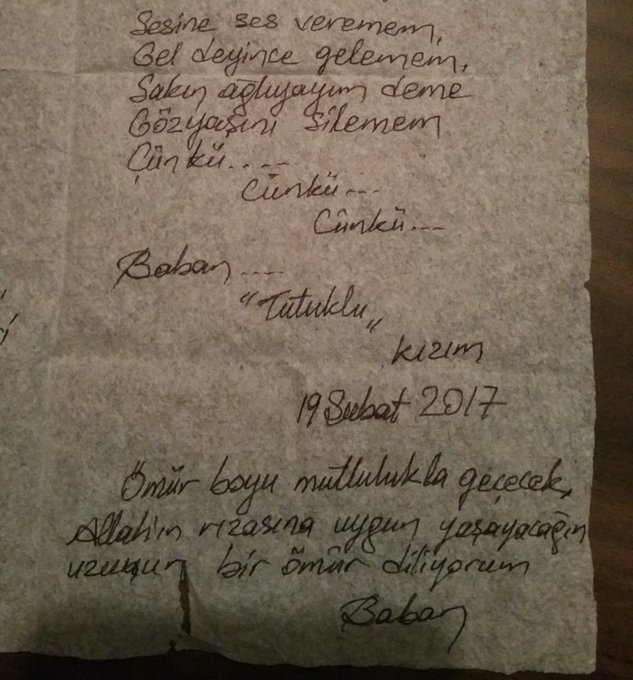 Sesine ses veremem,
Gel deyince gelemem,
Sakın ağlıyayım deme
Gözyaşını silemem
Çünkü....
Çünkü...
Çünkü...
Baban....
"Tutuklu"
kızım
19 Şubat 2017
Ömür boyu mutlulukla geçecek,
Allah'ın rızasına uygun yaşayacağın
uzuun bir ömür diliyorum
Baban